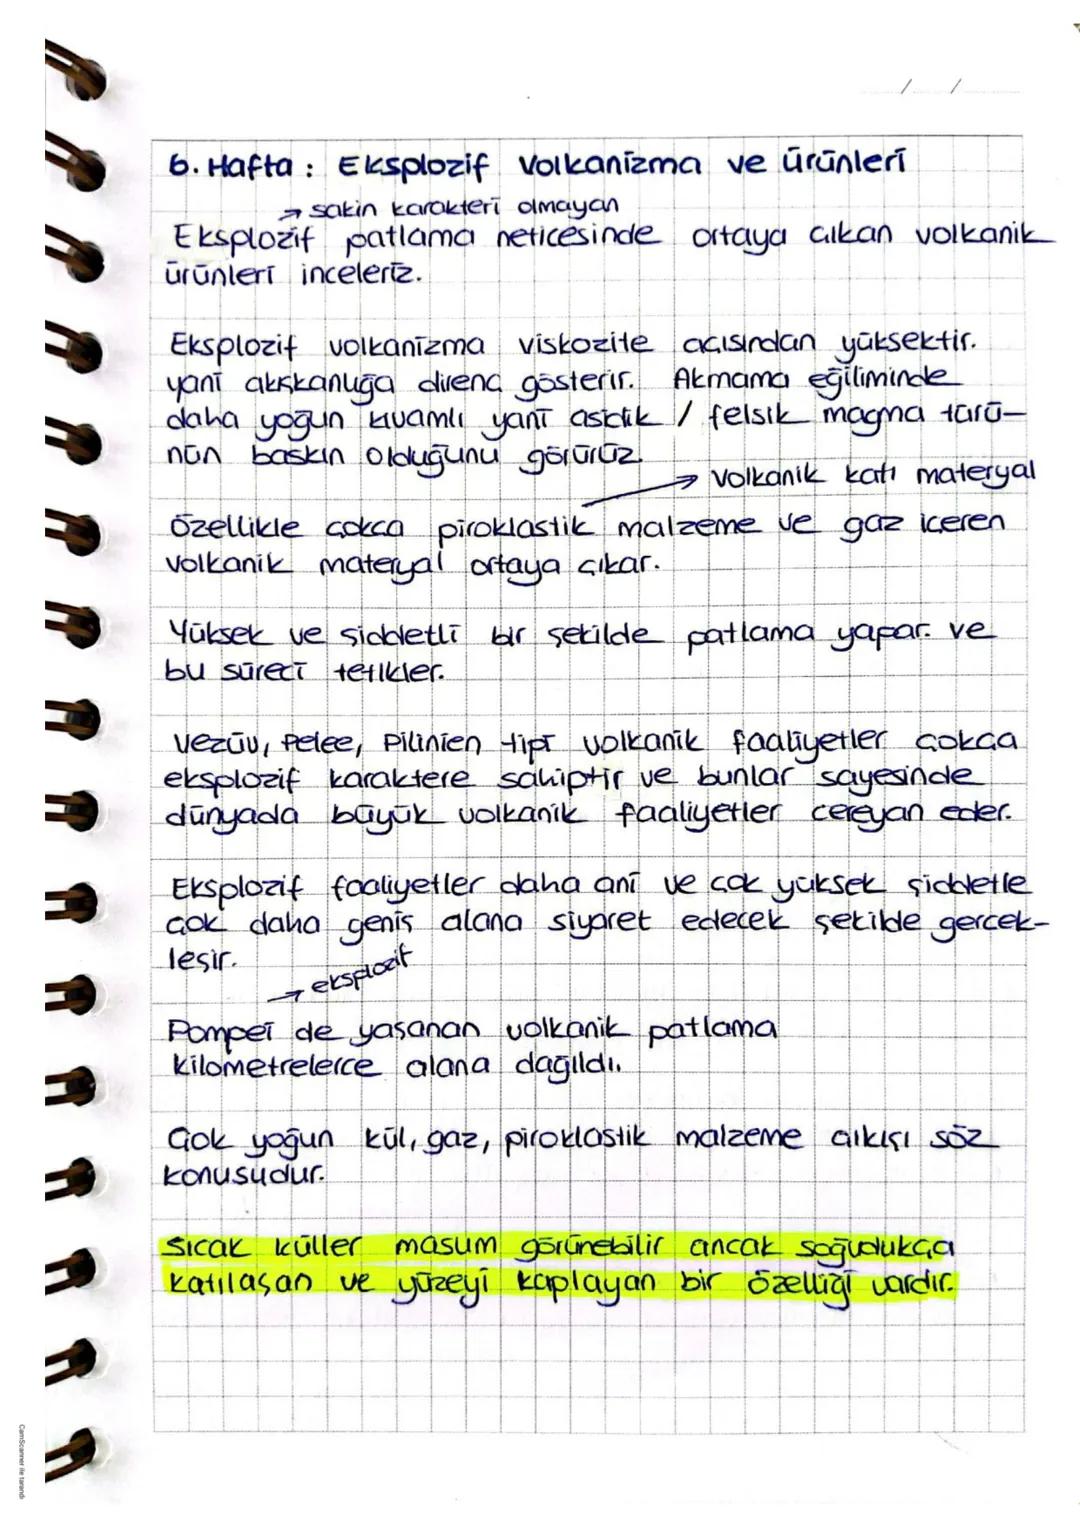 / /
6. Hafta : Eksplozif Volkanizma ve ürünleri
→ sakin karakteri olmayan
Eksplozif patlama neticesinde ortaya çıkan volkanik
ürünleri inceleriz.
Eksplozif volkanizma viskozite açısından yüksektir.
yani akışkanlığa direnç gösterir. Akmama eğiliminde
daha yoğun kıvamlı yani asidik / felsik magma türü-
nün baskın olduğunu görürüz.
→ Volkanik katı materyal
Özellikle çokça piroklastik malzeme ve gaz içeren
volkanik materyal ortaya çıkar.
Yüksek ve şiddetli bir şekilde patlama yapar. ve
bu süreci tetikler.
Vezüv, Pelee, Pilinien tipi volkanik faaliyetler çokça
eksplozif karaktere sahiptir ve bunlar sayesinde
dünyada büyük volkanik faaliyetler cereyan eder.
Eksplozif faaliyetler daha ani ve çok yüksek şiddetle
çok daha geniş alana siyaret edecek şekilde gerçek-
leşir.
→ eksplozif
Pompei de yaşanan volkanik patlama
kilometrelerce alana dağıldı.
Çok yoğun kül, gaz, piroklastik malzeme çıkışı söz
konusudur.
Sıcak küller masum görünebilir ancak soğudukça
katılaşan ve yüzeyi kaplayan bir özelliği vardır.
CamScanner ile tarandı